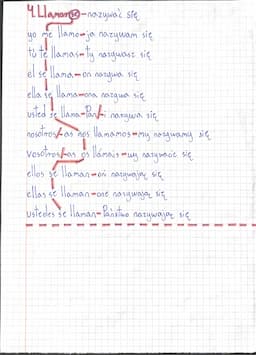 4 Llamarse - nazywać się
yo me llamo - ja nazywam się
tú te llamas - ty nazywasz się
el se llama - on nazywa się
ella se llama - ona nazywa się
usted se llama - Pan/i nazywa się
nosotros/as nos llamamos - my nazywamy się
vosotros/as os llámais - wy nazywacie się
ellos se llaman - oni nazywają się
ellas se llaman - one nazywają się
ustedes se llaman - Państwo nazywają się